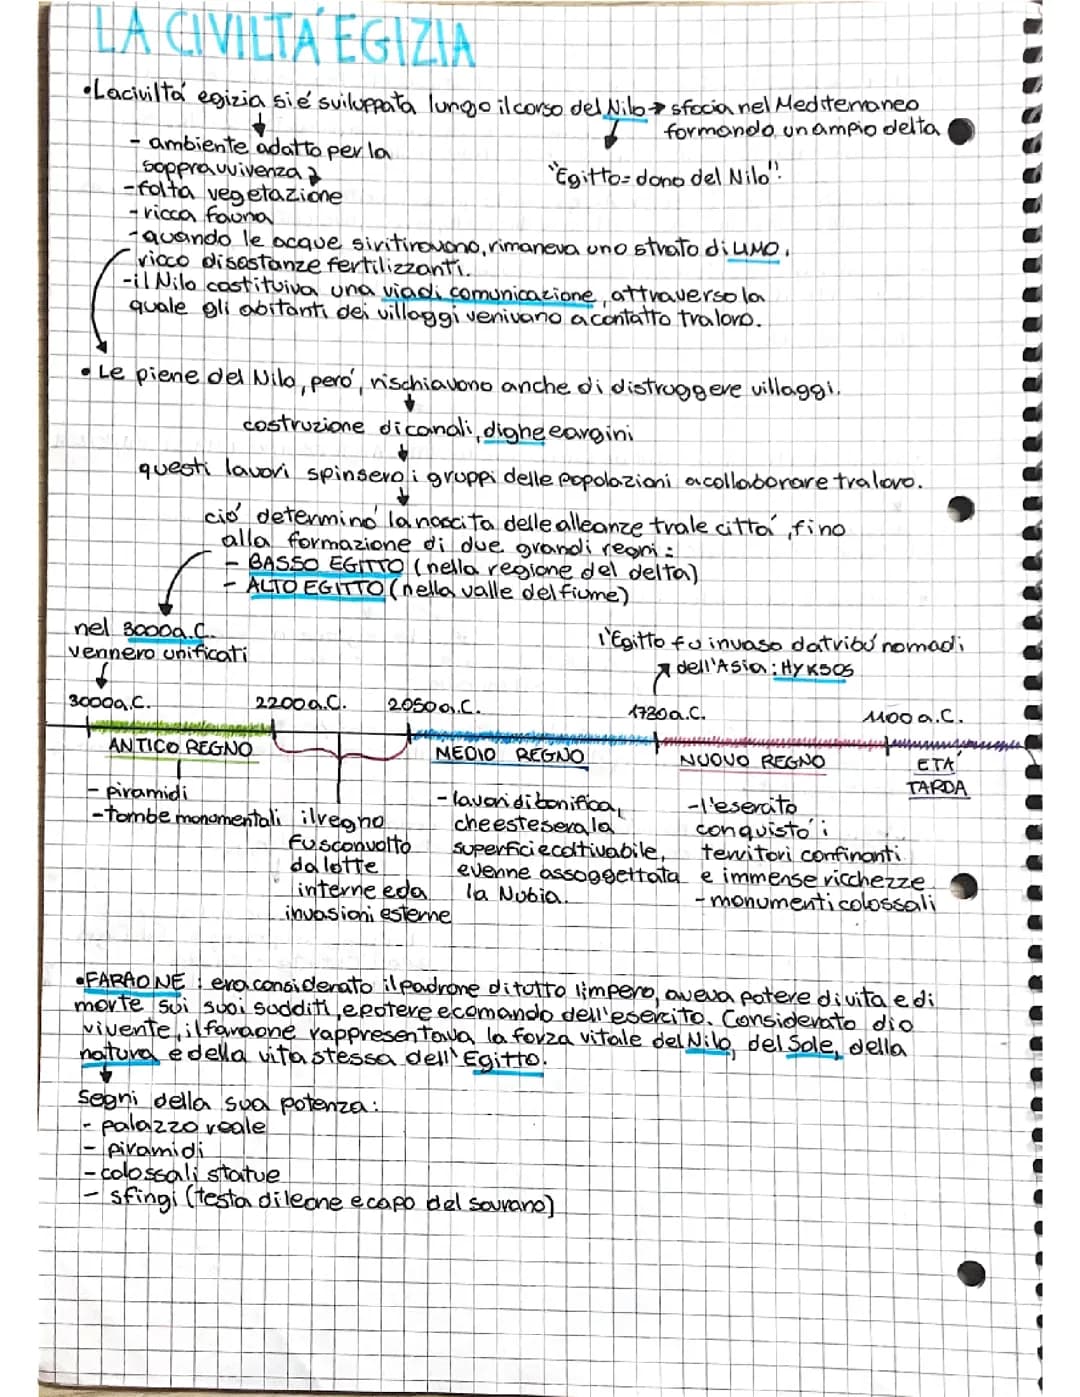 LA CIVILTÁ EGIZIA
•La civiltá egizia si é sviluppata lungo il corso del Nilo → sfocia nel Mediterraneo
formando un ampio delta
- ambiente adatto per la
soppravvivenza
"Egitto = dono del Nilo".
- folta vegetazione
- ricca fauna
- quando le acque si ritiravano, rimaneva uno strato di LIMO,
ricco di sostanze fertilizzanti.
- il Nilo costituiva una via di comunicazione, attraverso la
quale gli abitanti dei villaggi venivano a contatto tra loro.
• Le piene del Nilo, peró, rischiavono anche di distruggere villaggi.
costruzione di canali, dighe e argini
questi lavori spinsero i gruppi delle popolazioni a collaborare tra loro.
ció determinó la nascita delle alleanze tra le cittá, fino
alla formazione di due grandi regni:
- BASSO EGITTO (nella regione del delta)
- ALTO EGITTO (nella valle del fiume)
nel 3000 a.C.
vennero unificati
l'Egitto fu invaso da tribú nomadi
dell'Asia: HYKSOS
3000 a.C. 2200 a.C. 2050 a.C. 1730 a.C. 1100 a.C.
ANTICO REGNO MEDIO REGNO NUOVO REGNO ETÁ
TARDA
- piramidi
- tombe monumentali
il regno
fu sconvolto
da lotte
interne e da
invasioni esterne
- lavori di bonifica,
che estese la
superficie coltivabile,
e venne assoggettata
la Nubia.
- l'esercito
conquistó i
territori confinanti
e immense ricchezze
- monumenti colossali
•FARAONE: era considerato il padrone di tutto l'impero, aveva potere di vita e di
morte sui suoi sudditi, e potere e comando dell'esercito. Considerato dio
vivente, il faraone rappresentava la forza vitale del Nilo, del Sole, della
natura e della vita stessa dell'Egitto.
Segni della sua potenza:
- palazzo reale
- piramidi
- colossali statue
- sfingi (testa di leone e capo del sovrano)